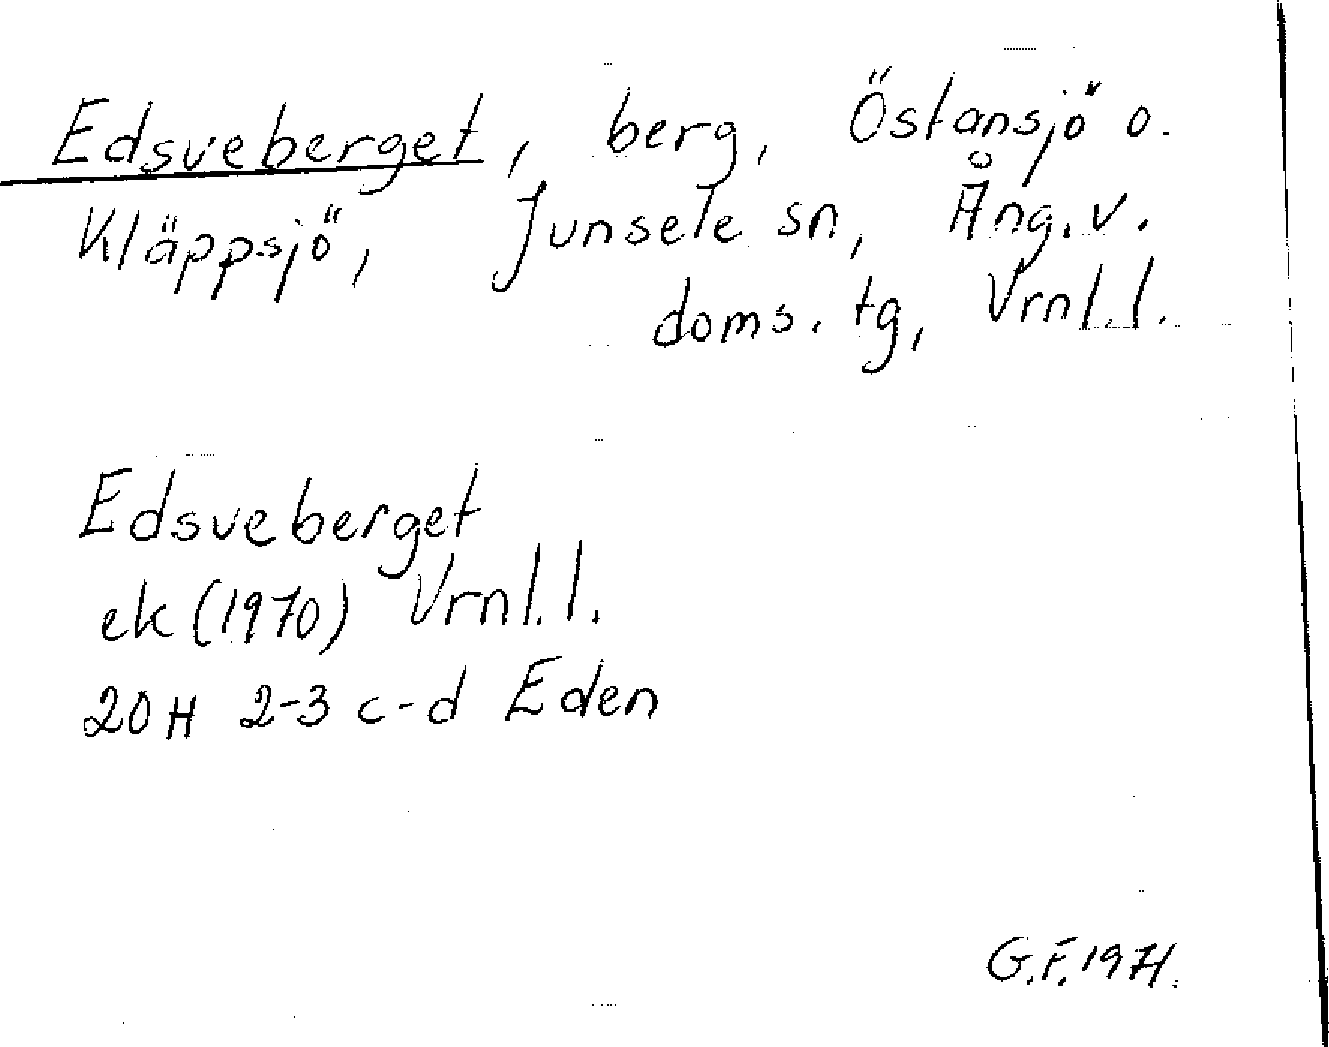 Edsveberget, berg, Östansjö o.
Kläppsjö, Junsele sn, Ång. v.
doms. tg, Vrnl. l.
Edsveberget
ek (1970) Vrnl. l.
20 H 2-3 c-d Eden
G.F. 1971.